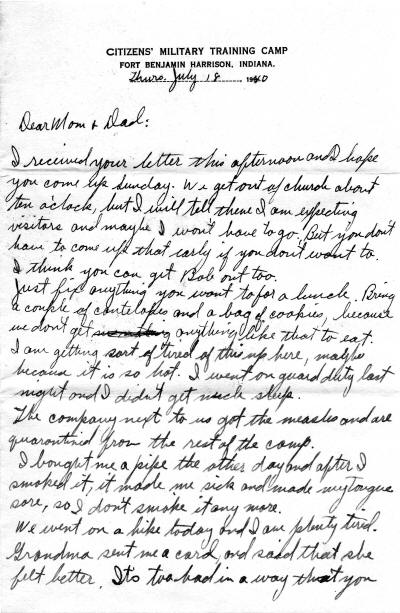 CITIZENS' MILITARY TRAINING CAMP
FORT BENJAMIN HARRISON, INDIANA.
Thurs. July 18 1940
Dear Mom & Dad:
I received your letter this afternoon and I hope
you come up Sunday. We get out of church about
ten o'clock, but I will tell them I am expecting
visitors and maybe I won't have to go. But you don't
have to come up that early if you don't want to.
I think you can get Bob out too.
Just fix anything you want to for a lunch. Bring
a couple of cantelopes and a bag of cookies, because
we don't get anything like that to eat.
I am getting sort of tired of this up here, maybe
because it is so hot. I went on guard duty last
night and I didn't get much sleep.
The company next to us got the measles and are
quarantined from the rest of the camp.
I bought me a pipe the other day and after I
smoked it, it made me sick and made my tongue
sore, so I don't smoke it any more.
We went on a hike today and I am plenty tired.
Grandma sent me a card, and said that she
felt better. It's too bad in a way that you